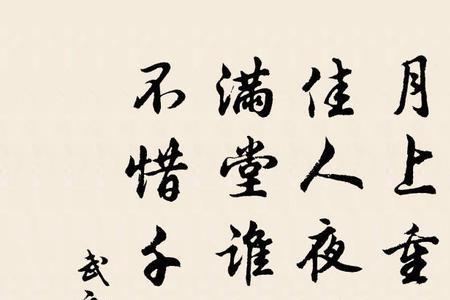 月上重
佳人夜
满堂谁
不惜千
武